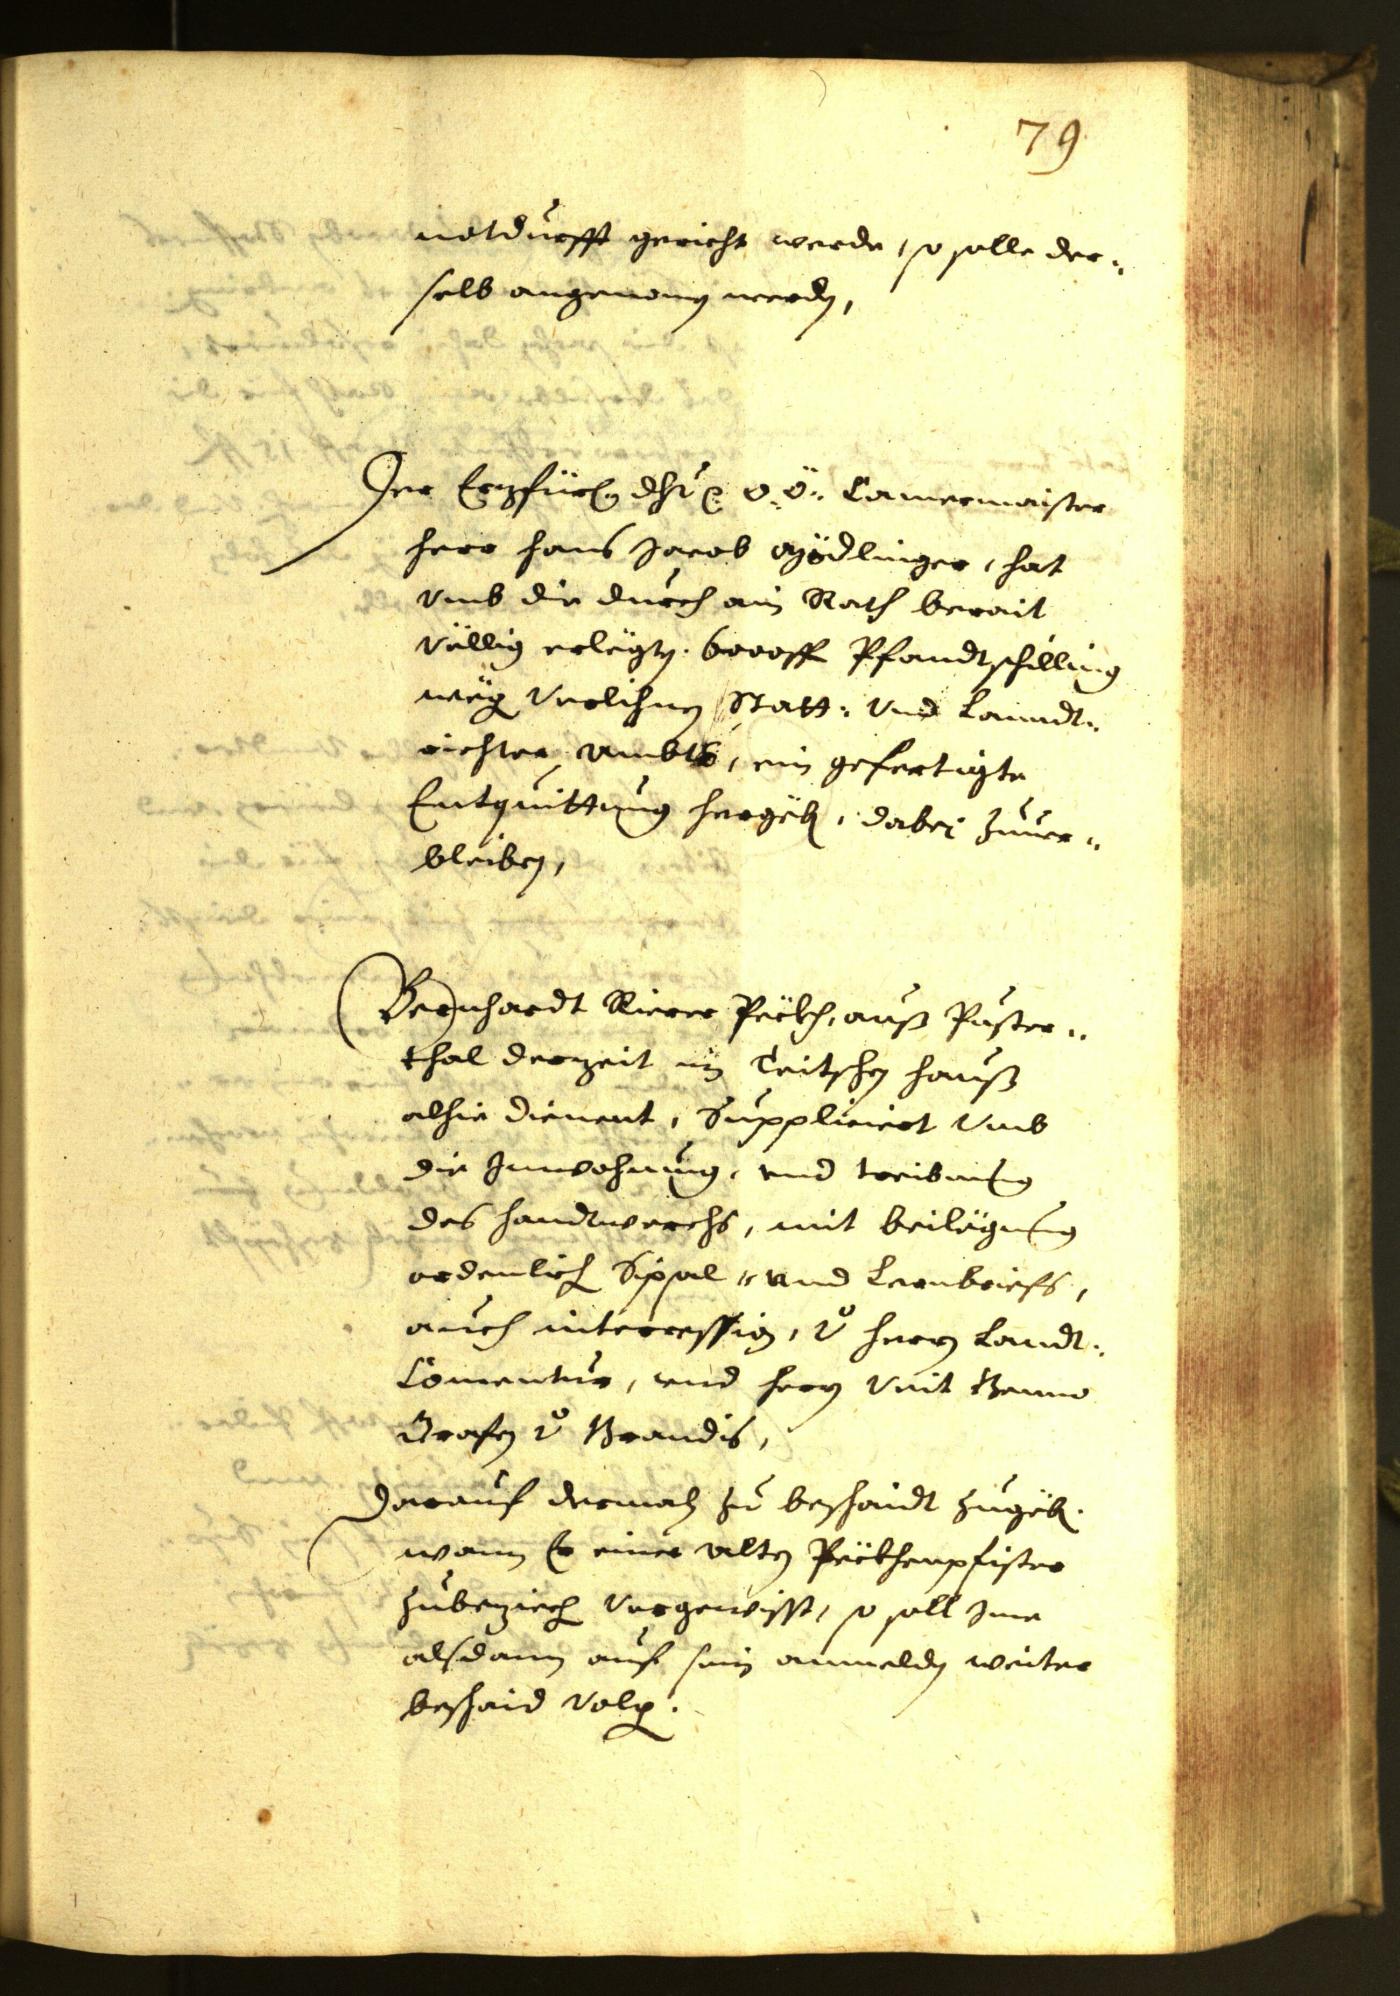 79
notdurfft gericht werde, so solle der„
selb angenomen werden,
Der Erzfürst. Dhrt. O. Ö. Camermaister
herr Hans Jacob Gödlinger, hat
vmb die durch ain Rath berait
völlig erlegten. 6000 fl Pfandtschilling
weg. verlihnen Statt: vnd Lanndt„
richter Ambts, ein gefertigte
Entquittung hergeben, dabei zuuer„
bleiben,
Bernhardt Rierer Peckh, auß Puster„
thal derzeit im Teitschen hauß
alhie dienent, Suppliciert vmb
die Inwohnung, vnd treibung
des handtwerchs, mit beilegung
ordenlich Sippal „ vnd Lernbriefs,
auch intercession, v. herrn Landt„
Comentur, vnd herrn Veit Benno
Grafen v. Brandis,
Darauf dermaln zu beschaidt zugeben.
wann Er einer alten Peckhenpfister
zubeziech vergewisst, so soll Ime
alsdann auf sein anmelden weiter
beschaid volgen.